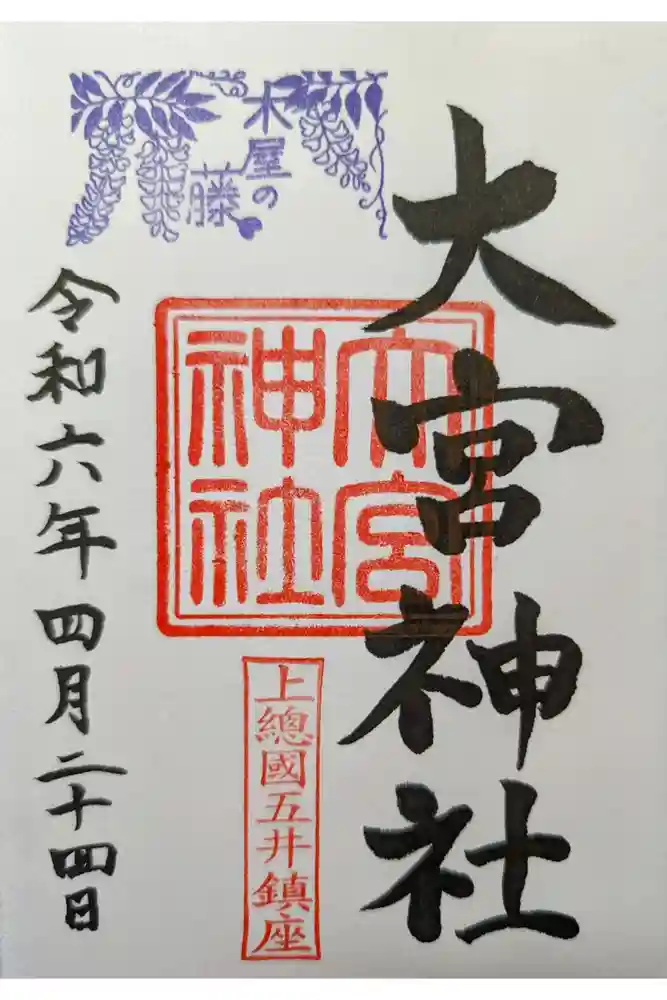 大宮神社
大宮
神社
上總國五井鎮座
木屋の
藤
令和六年四月二十四日